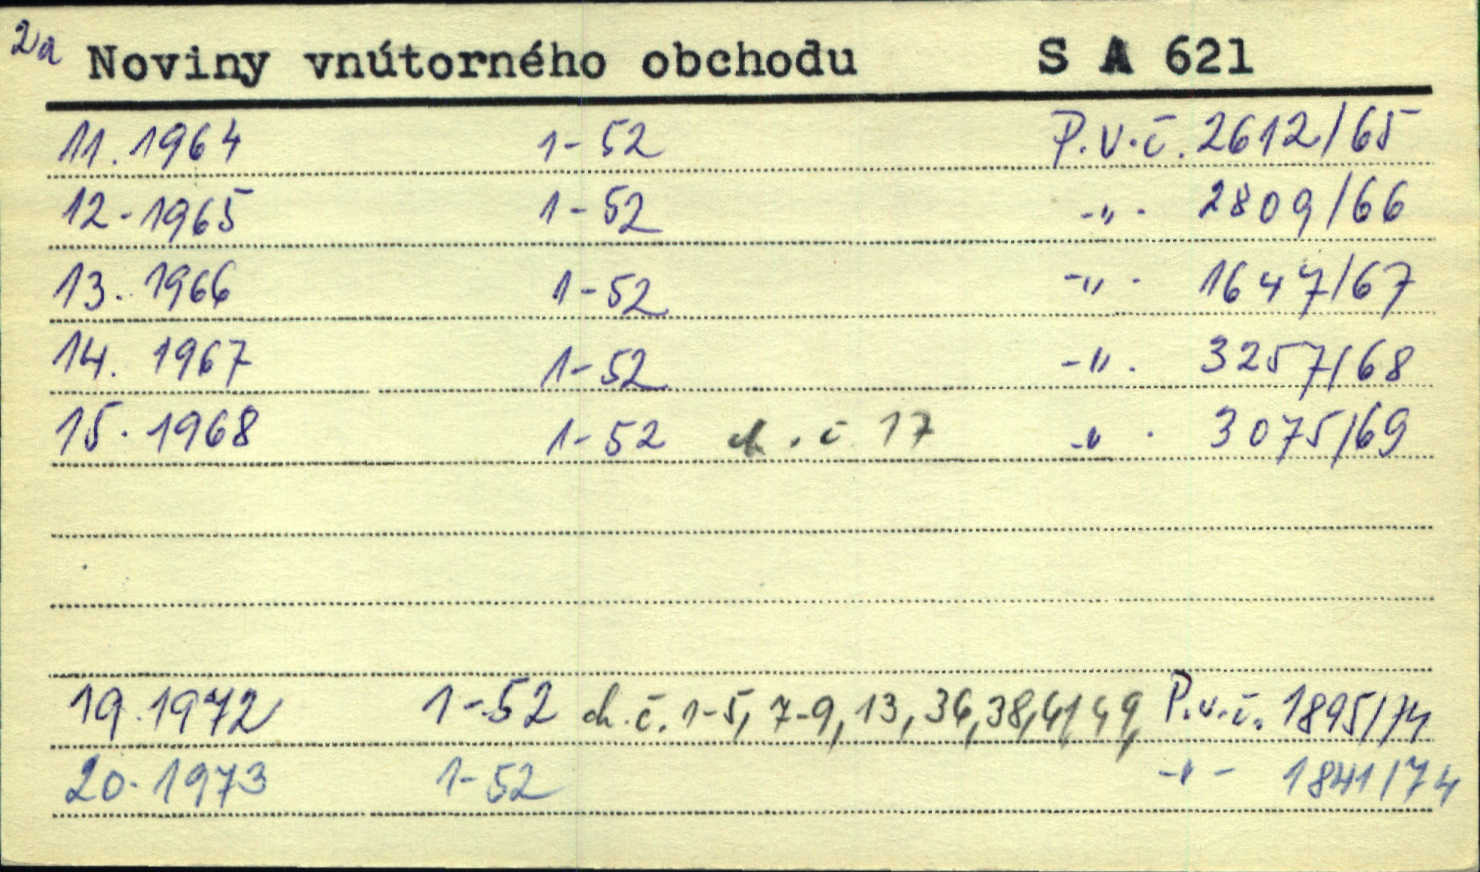 2a Noviny vnútorného obchodu S A 621
11. 1964 1-52 P.v.č. 2612/65
12. 1965 1-52 -"- 2809/66
13. 1966 1-52 -"- 1647/67
14. 1967 1-52 -"- 3257/68
15. 1968 1-52 ch. č. 17 -"- 3075/69
19. 1972 1-52 ch. č. 1-5, 7-9, 13, 36, 38, 41, 49, P.v.č. 1895/74
20. 1973 1-52 -"- 1841/74